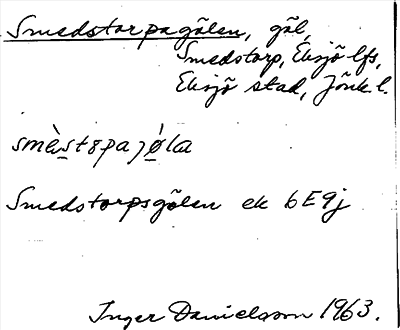 Smedstorpagölen, göl,
Smedstorp, Eksjö lfs,
Eksjö stad, Jönk. l.
smè̱stɤpajǿ̱la
Smedstorpsgölen ek 6E9j
Inger Danielsson 1963.